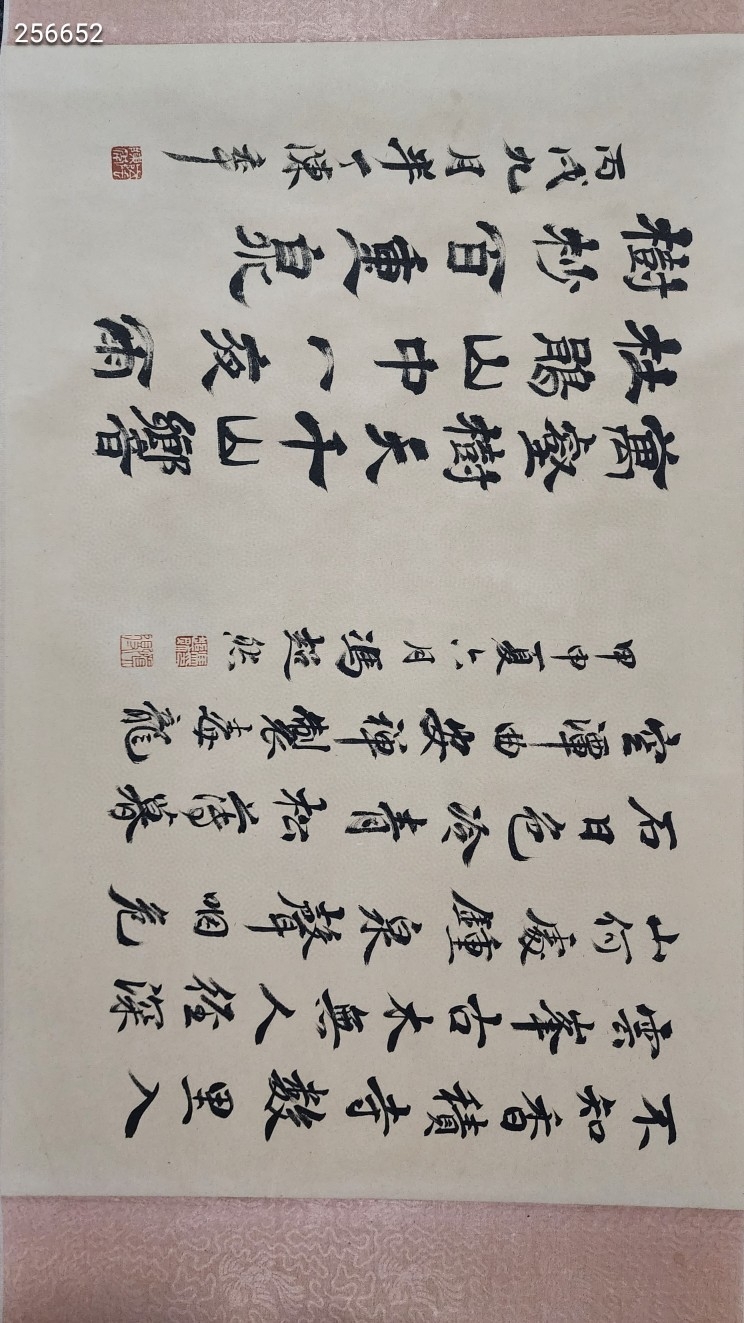 256652
不知香積寺數里入
雲峯古木無人徑深
山何處鐘泉聲咽危
石日色冷青松薄暮
空潭曲安禪製毒龍
甲申夏六月馮超然
萬壑樹天千山響
杜鵑山中一夜雨
樹杪百重泉
丙戌九月半丁陳年